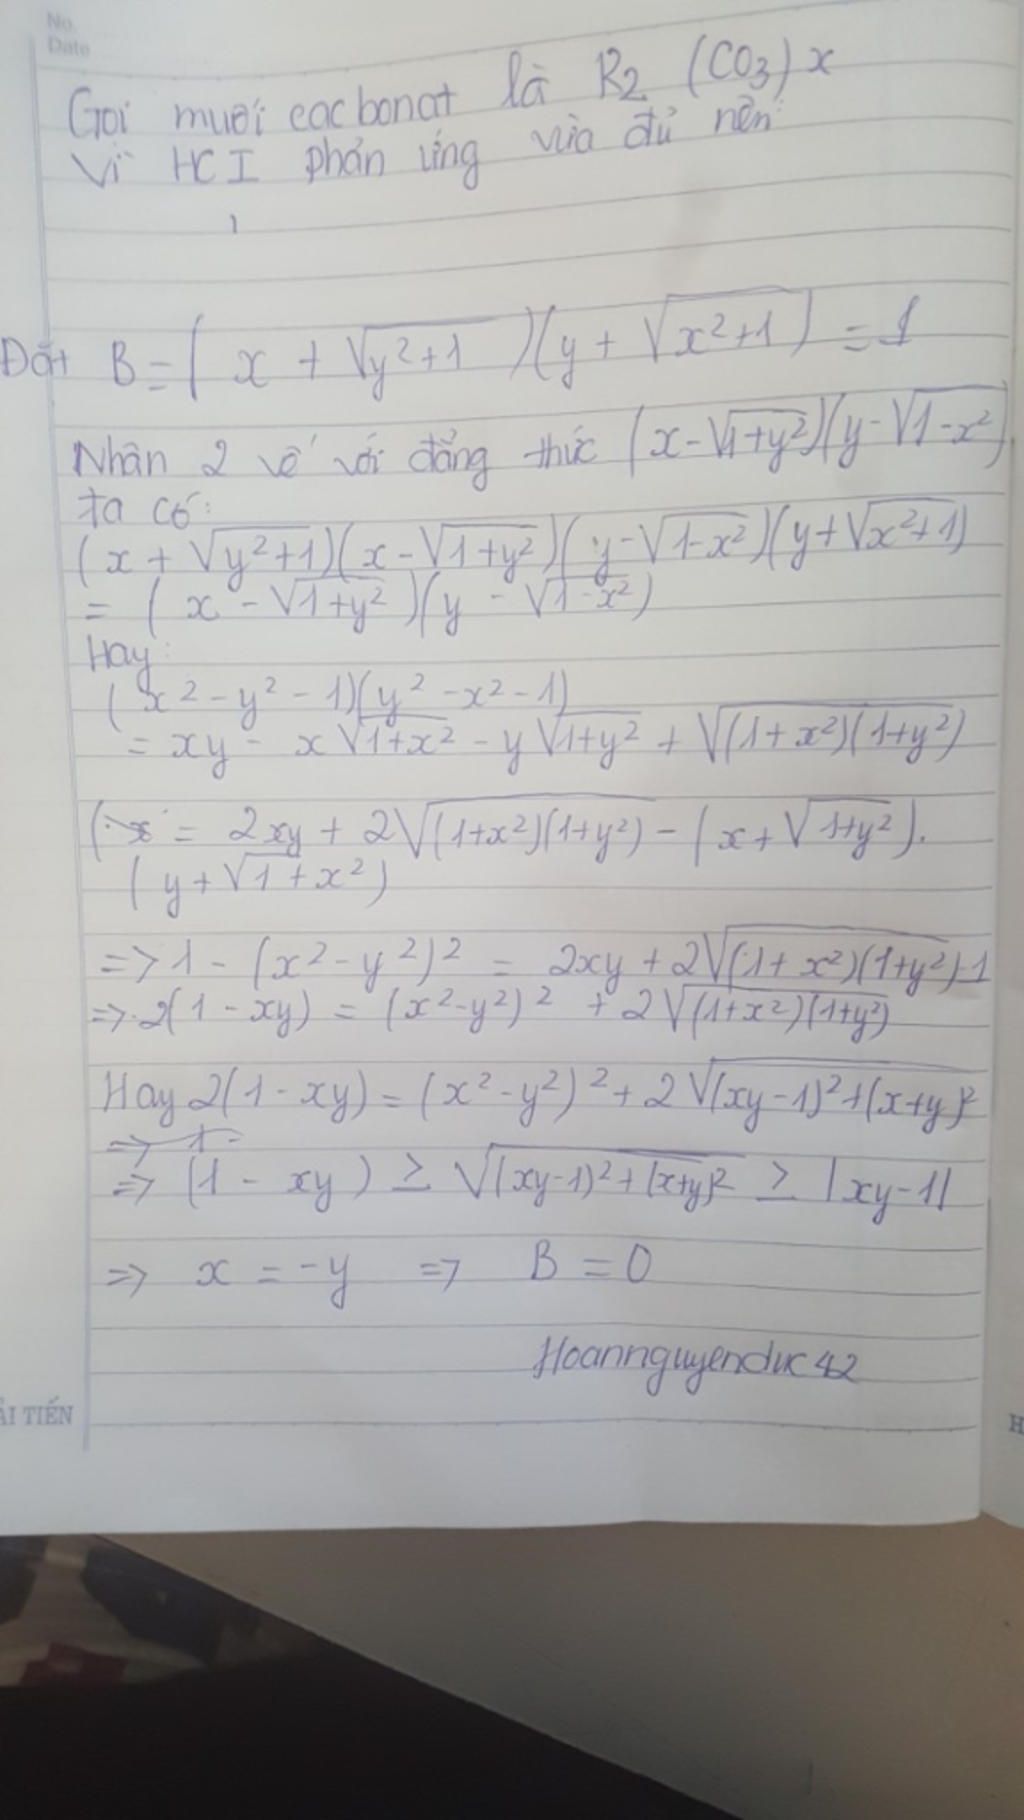 No.
Date
Gọi muối cacbonat là R2 (CO3)x
Vì HCI phản ứng vừa đủ nên:
Đặt B = (x + √(y²+1))(y + √(x²+1)) = 1
Nhân 2 vế với đẳng thức (x-√(1+y²))(y-√(1-x²))
ta có:
(x + √(y²+1))(x-√(1+y²))(y-√(1-x²))(y+√(x²+1))
= (x - √(1+y²))(y - √(1-x²))
Hay:
(x² - y² - 1)(y² - x² - 1)
= xy - x√(1+x²) - y√(1+y²) + √((1+x²)(1+y²))
= 2xy + 2√((1+x²)(1+y²)) - (x + √(1+y²)).
(y+√(1+x²))
=> 1 - (x²-y²)² = 2xy + 2√((1+x²)(1+y²))-1
=> 2(1 - xy) = (x²-y²)² + 2√((1+x²)(1+y²))
Hay 2(1-xy) = (x²-y²)² + 2√((xy-1)²+(x+y)²)
=> (1 - xy) ≥ √((xy-1)²+(x+y)²) ≥ |xy-1|
=> x = -y => B = 0
Hoannguyenduc42
ẢI TIẾN
H